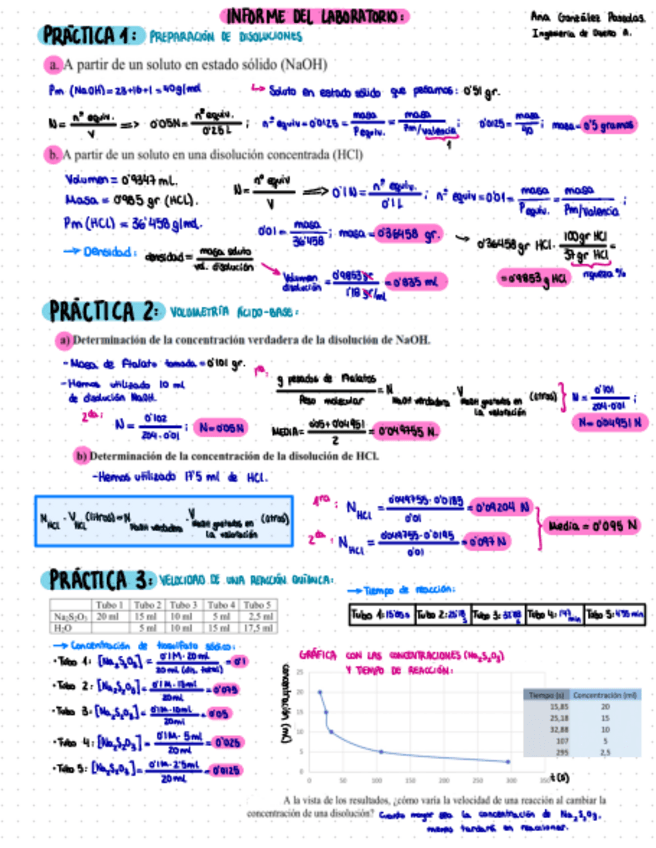 INFORME DEL LABORATORIO:
Ana González Posadas.
PRÁCTICA 1: PREPARACIÓN DE DISOLUCIONES
a. A partir de un soluto en estado sólido (NaOH)
Pm (NaOH)=23+16+1=40g/mol
→ Soluto en estado sólido que pesamos: 0'51 gr.
N = nº equiv. / V => 0'05N = nº equiv. / 0'25 L ; nº equiv = 0'0125 = masa / Pequiv. = masa / Pm/valencia ; 0'0125 = masa / 40 ; masa = 0'5 gramos
1
b. A partir de un soluto en una disolución concentrada (HCl)
Volumen = 0'9347 mL.
Masa = 0'985 gr (HCL).
Pm (HCL) = 36'458 g/mol.
N = nº equiv / V => 0'1N = nº equiv. / 0'1 L ; nº equiv = 0'01 = masa / Pequiv. = masa / Pm/valencia ;
0'01 = masa / 36'458 ; masa = 0'36458 gr. → 0'36458 gr HCl. 100gr HCl / 37gr HCl =
= 0'9853 g HCl riqueza %
→ Densidad: densidad = masa soluto / vol. disolución
Volumen disolución = 0'9853 gr / 1'18 gr/mL = 0'835 ml
PRÁCTICA 2: VOLUMETRÍA ÁCIDO-BASE:
a) Determinación de la concentración verdadera de la disolución de NaOH.
- Masa de Ftalato tomada = 0'101 gr.
- Hemos utilizado 10 ml
de disolución NaOH.
1ª: g pesados de Ftalatos / Peso molecular = N NaOH verdadera . V NaOH gastados en la valoración (litros) } N = 0'101 / 204·0'01 ; N = 0'04951 N
2ª: N = 0'102 / 204·0'01 ; N = 0'05 N
MEDIA = 0'05 + 0'04951 / 2 = 0'049755 N.
b) Determinación de la concentración de la disolución de HCl.
- Hemos utilizado 17'5 ml de HCL.
N HCL . V HCL (litros) = N NaOH verdadera . V NaOH gastados en la valoración (litros)
1ra: N HCL = 0'049755·0'0185 / 0'01 = 0'09204 N
2ª: N HCL = 0'049755·0'0195 / 0'01 = 0'097 N
Media = 0'095 N
PRÁCTICA 3: VELOCIDAD DE UNA REACCIÓN QUÍMICA:
→ Tiempo de reacción:
Tubo 1 Tubo 2 Tubo 3 Tubo 4 Tubo 5
Na₂S₂O₃ 20 ml 15 ml 10 ml 5 ml 2,5 ml
H₂O 5 ml 10 ml 15 ml 17,5 ml
→ Concentración de tiosulfato sódico:
· Tubo 1: [Na₂S₂O₃] = 0'1M·20ml / 20ml (dis. total) = 0'1
· Tubo 2: [Na₂S₂O₃] = 0'1M·15ml / 20ml = 0'075
· Tubo 3: [Na₂S₂O₃] = 0'1M·10ml / 20ml = 0'05
· Tubo 4: [Na₂S₂O₃] = 0'1M·5ml / 20ml = 0'025
· Tubo 5: [Na₂S₂O₃] = 0'1M·2'5ml / 20ml = 0'0125
GRÁFICA CON LAS CONCENTRACIONES (Na₂S₂O₃)
Y TIEMPO DE REACCIÓN:
concentración (ml)
25
20
15
10
5
0
0 50 100 150 200 250 300 350
t (s)
Tiempo (s) Concentración (ml)
15,85 20
25,18 15
32,88 10
107 5
295 2,5
A la vista de los resultados, ¿cómo varía la velocidad de una reacción al cambiar la
concentración de una disolución? Cuanto mayor sea la concentración de Na₂S₂O₃,
menos tardará en reaccionar.